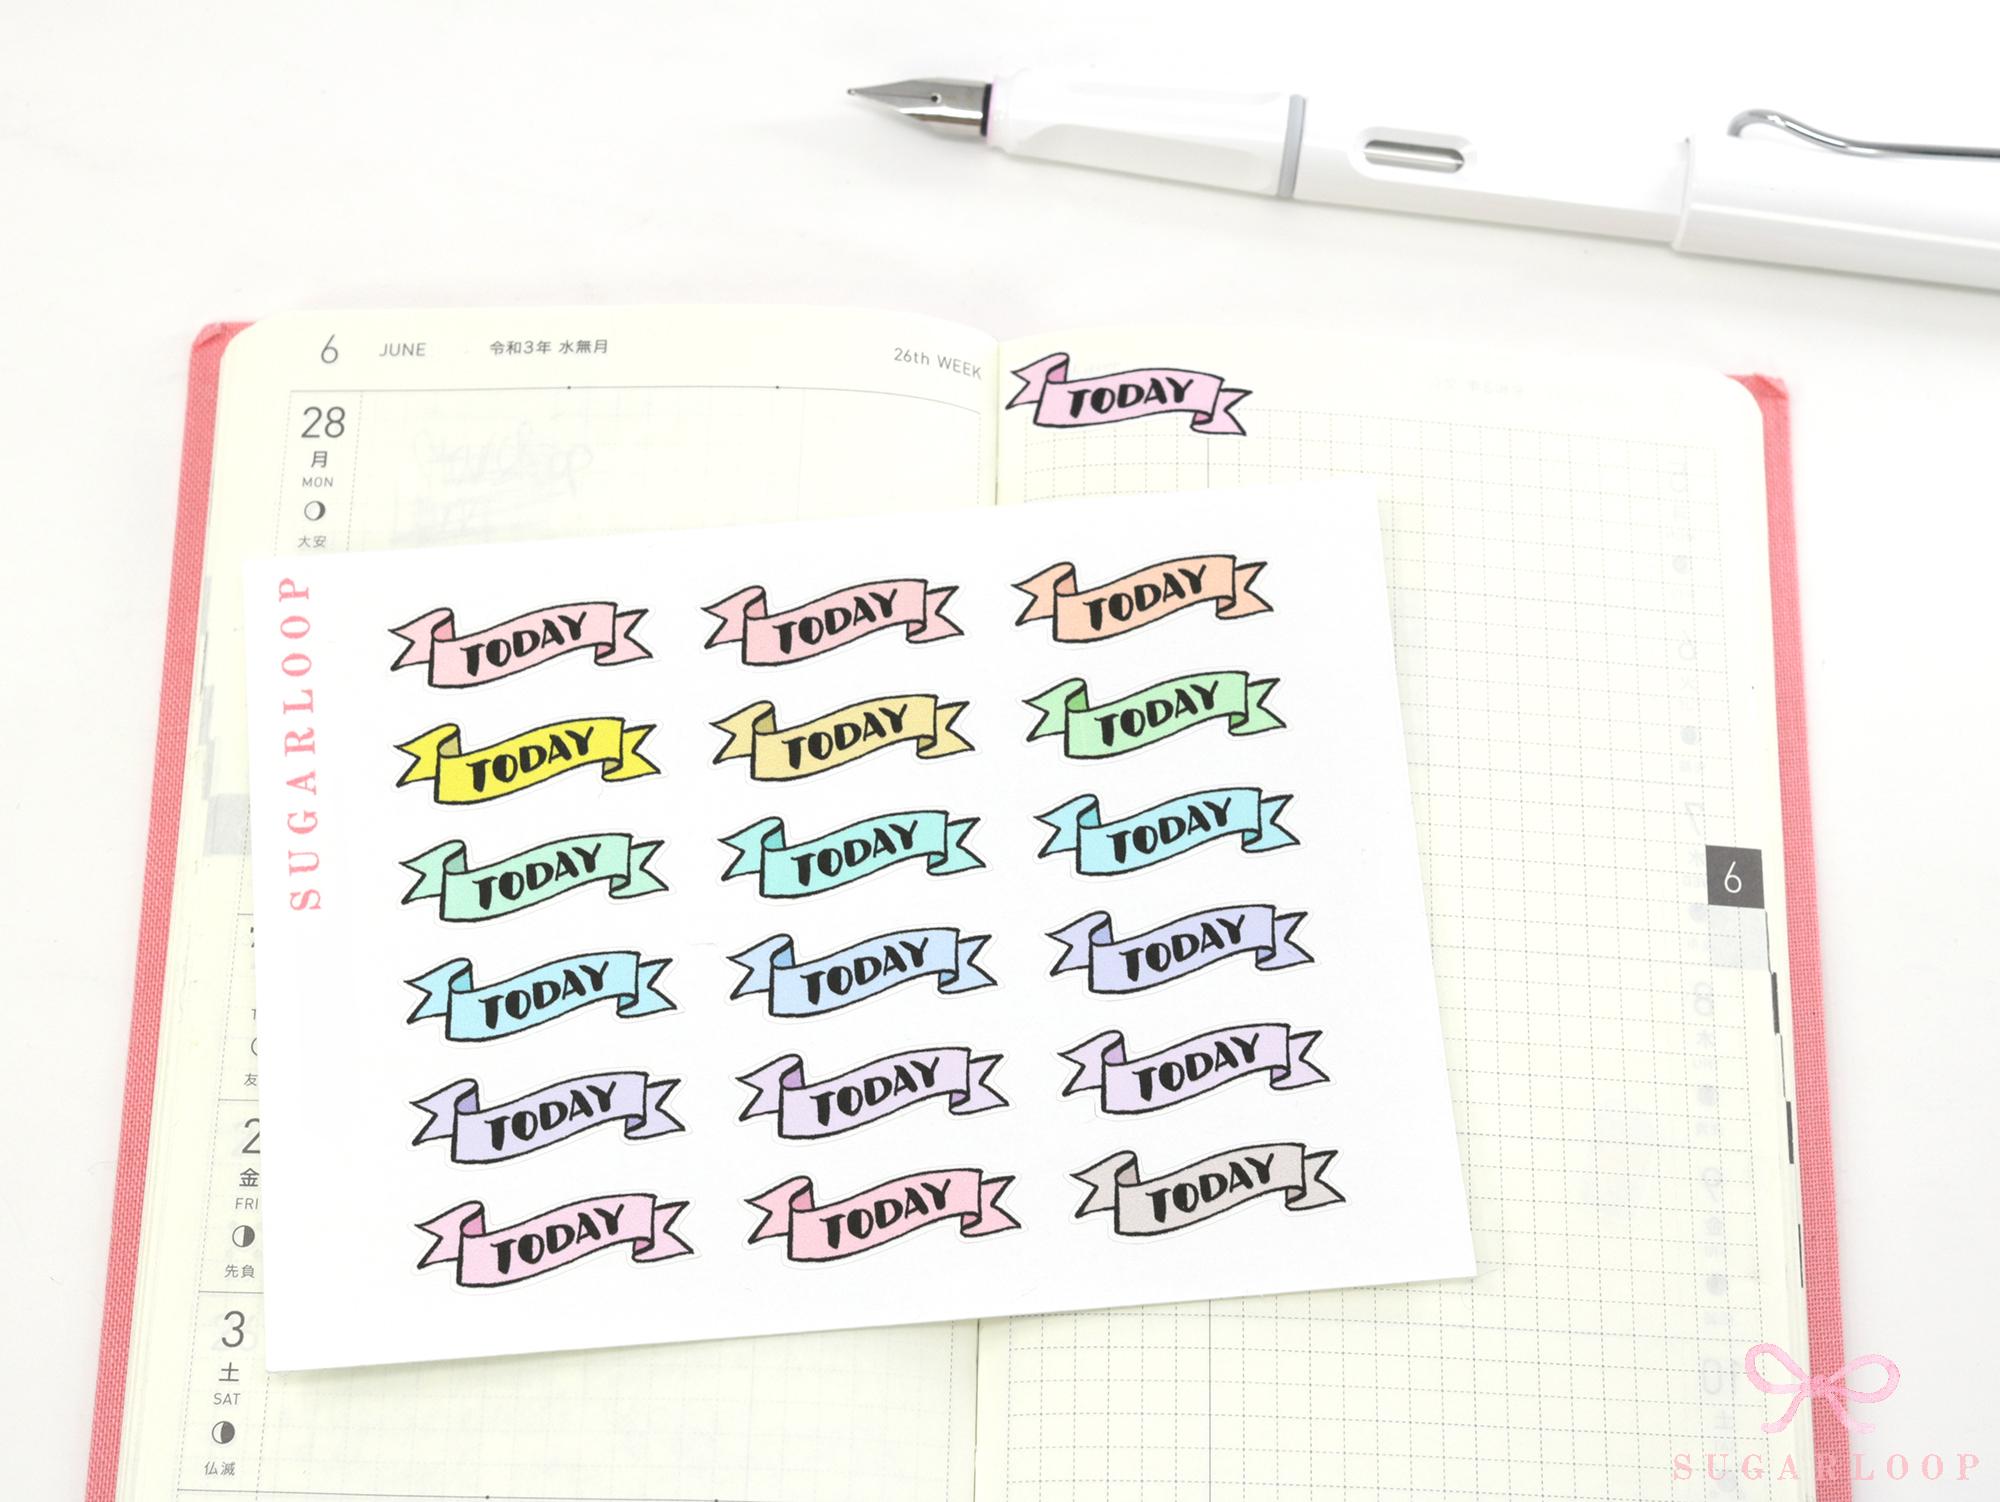 6 JUNE 令和3年 水無月
26th WEEK
28
月
MON
大安
TODAY
SUGARLOOP
TODAY TODAY TODAY
TODAY TODAY TODAY
TODAY TODAY TODAY
TODAY TODAY TODAY
TODAY TODAY TODAY
TODAY TODAY TODAY
6
友
2
金
FRI
先負
3
土
SAT
仏滅
SUGARLOOP